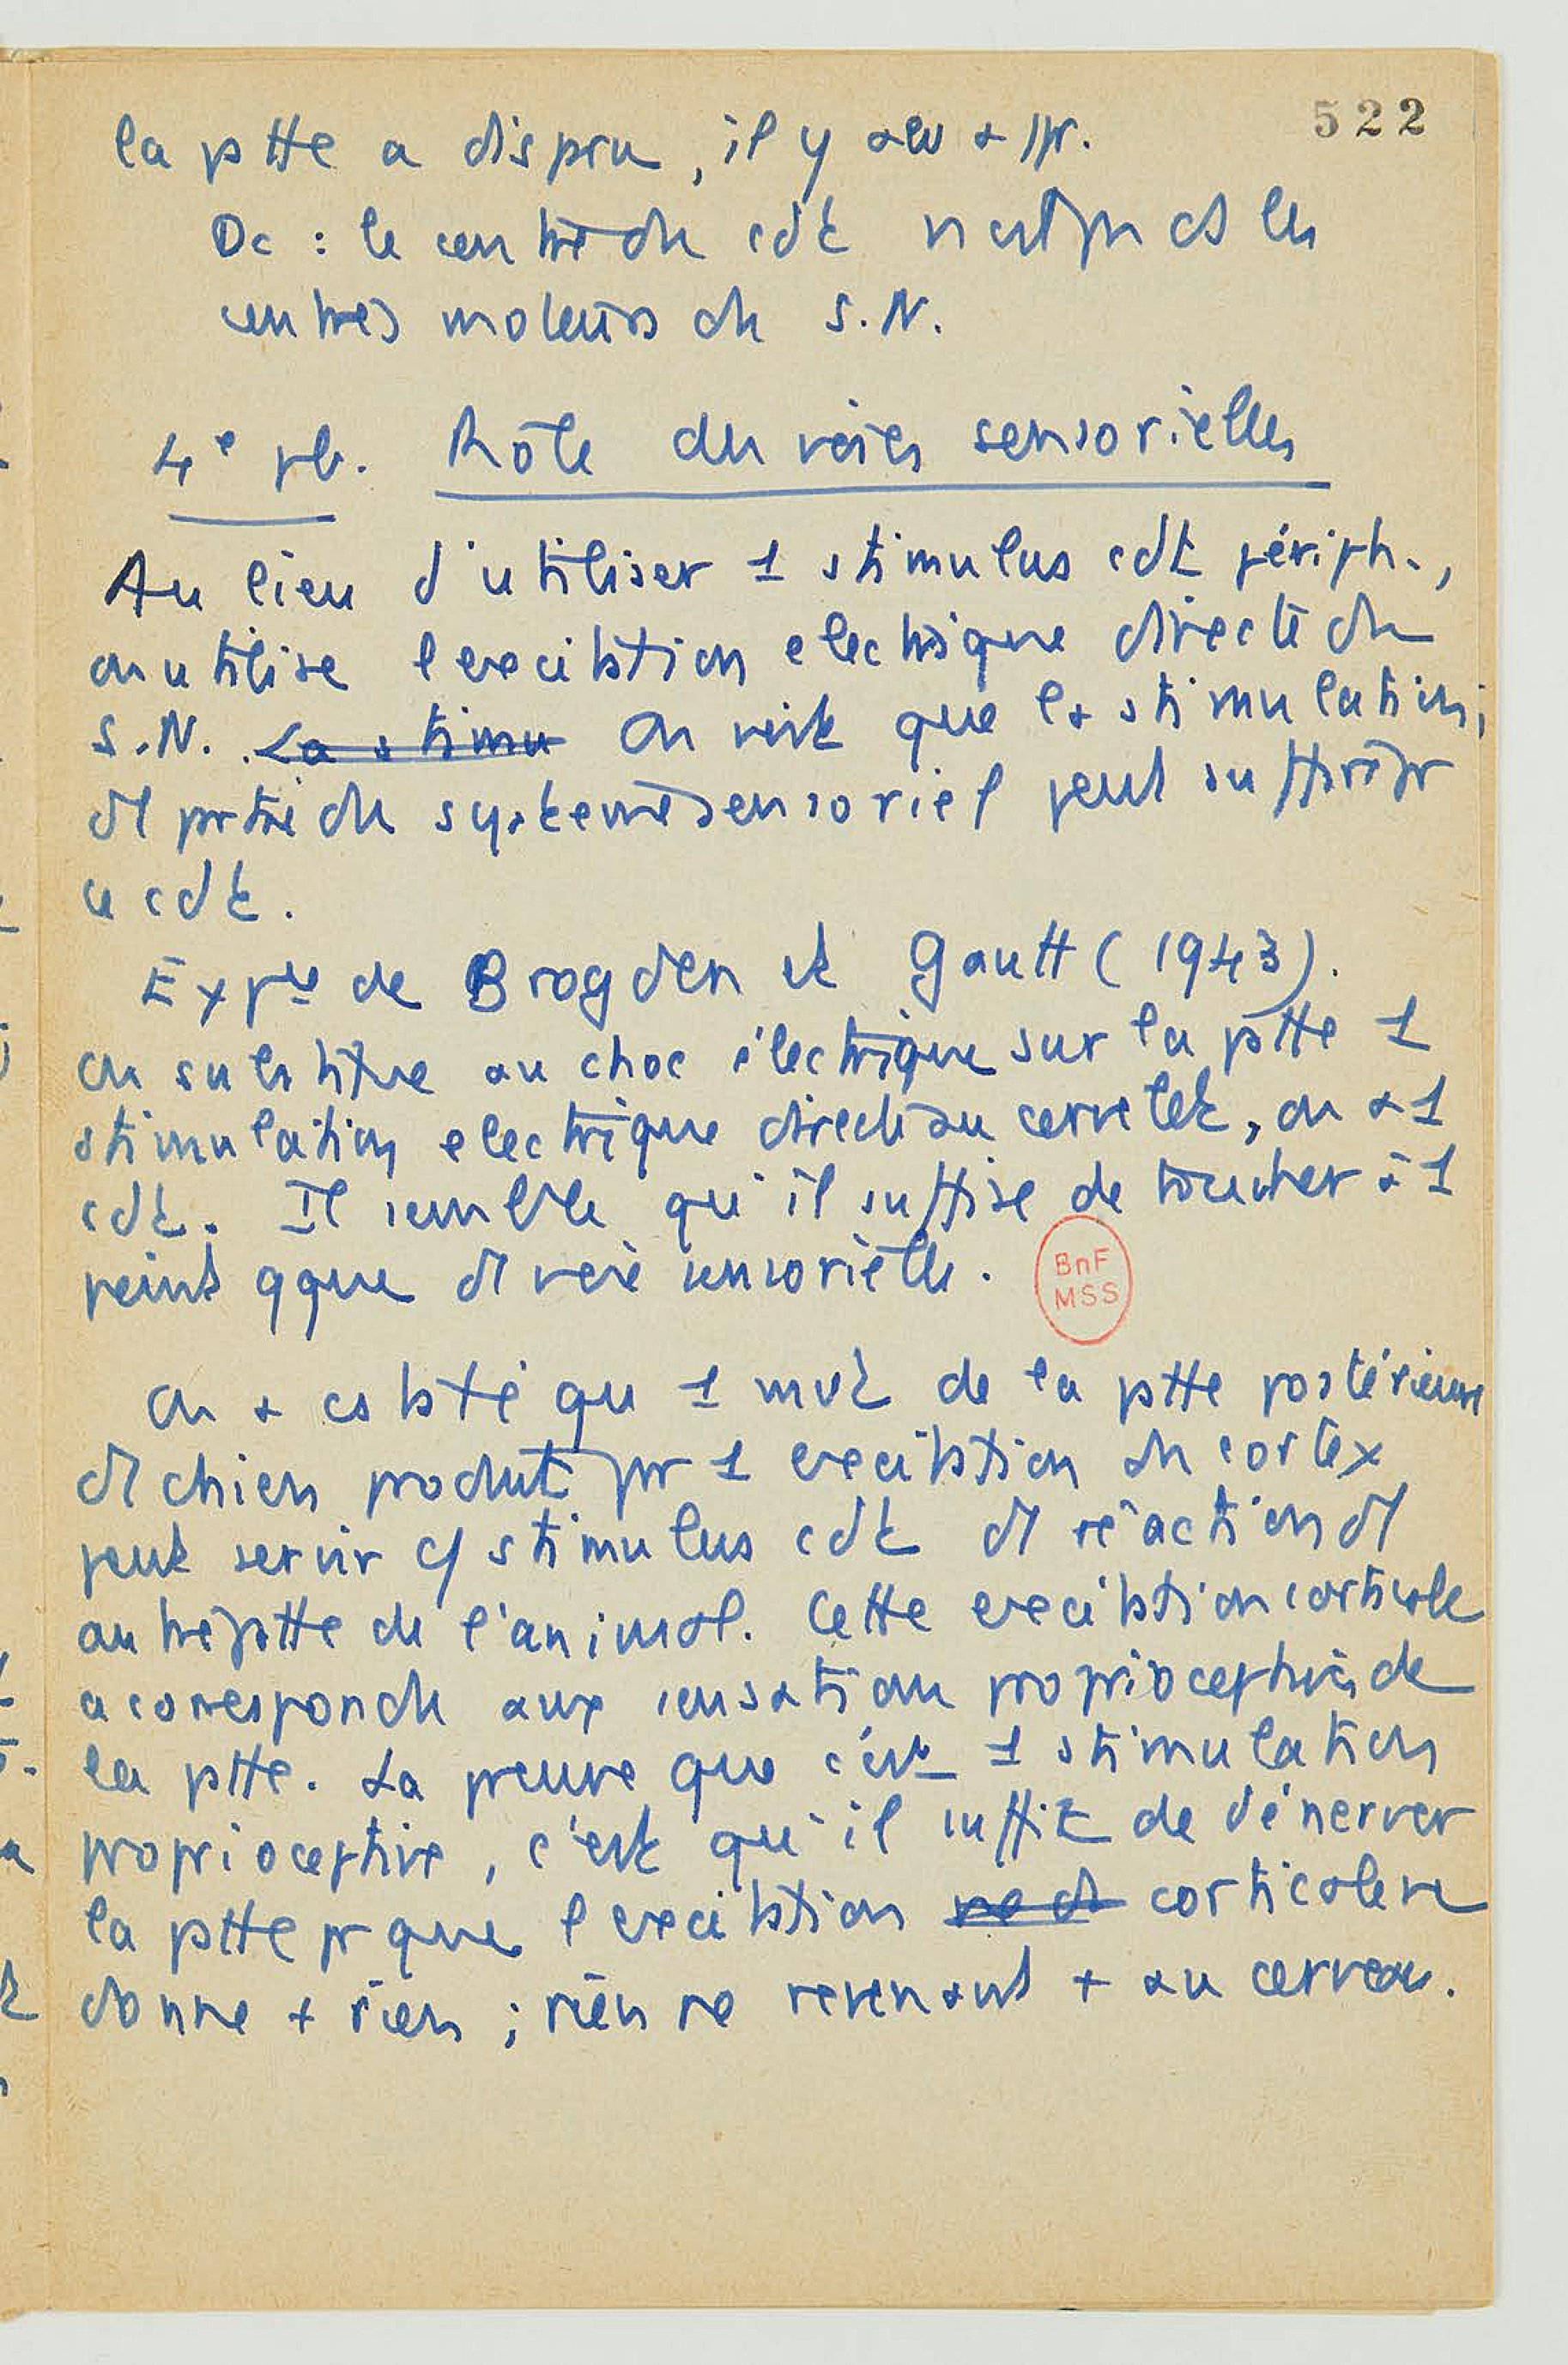 522
la ptte a disparu, il y a eu appr.
Dc : le centre du cdt n'est pas ds les
centres moteurs du S.N.
4e pb. Rôle des voies sensorielles
Au lieu d'utiliser 1 stimulus cdt périph.,
on utilise l'excitation electrique directe du
S.N. La stimu On voit que la stimulation
d1 partie du système sensoriel peut suffire pr
ce cdt.
Expce de Brogden et Gantt (1943).
On substitue au choc électrique sur la ptte 1
stimulation electrique directe au cervelet, on a 1
cdt. Il semble qu'il suffise de toucher à 1
point qque d1 voie sensorielle.
BnF
MSS
On a cstaté qu 1 mvt de la ptte postérieure
d1 chien produit pr 1 excitation du cortex
peut servir c/ stimulus cdt d1 réaction d1
autre ptte de l'animal. Cette excitation corticale
a correspondu aux sensations proprioceptives de
la ptte. La preuve que c'est 1 stimulation
proprioceptive, c'est qu'il suffit de dénerver
la ptte pr que l'excitation corticale ne
donne + rien ; rien ne revenant + au cerveau.